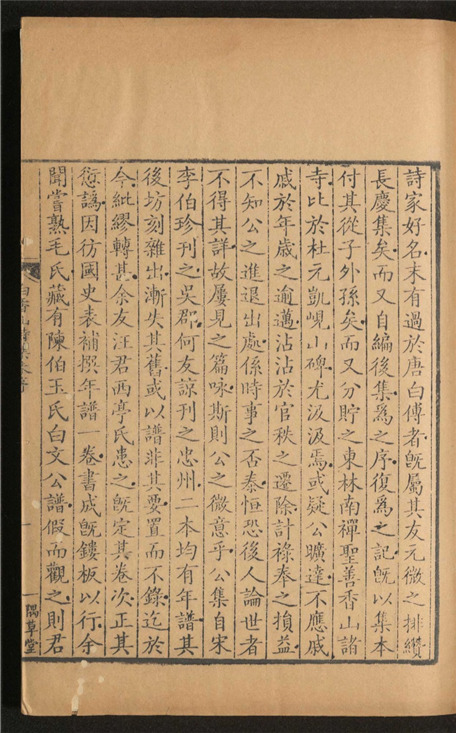 詩家好名未有過於唐白傅者旣屬其友元微之排纘
長慶集矣而又自編後集爲之序復爲之記旣以集本
付其從子外孫矣而又分貯之東林南禪聖善香山諸
寺比於杜元凱峴山碑尤汲汲焉或疑公曠達不應戚
戚於年歲之逾邁沾沾於官秩之遷除計祿奉之損益
不知公之進退出處係時事之否泰恒恐後人論世者
不得其詳故屢見之篇咏斯則公之微意乎公集自宋
李伯珍刊之吳郡何友諒刊之忠州二本均有年譜其
後坊刻雜出漸失其舊或以譜非其要置而不錄迄於
今紕繆轉甚余友汪君西亭氏患之旣定其卷次正其
愆譌因彷國史表補撰年譜一卷書成旣鏤板以行余
聞嘗熟毛氏藏有陳伯玉氏白文公譜假而觀之則君
白香山
一隅草堂